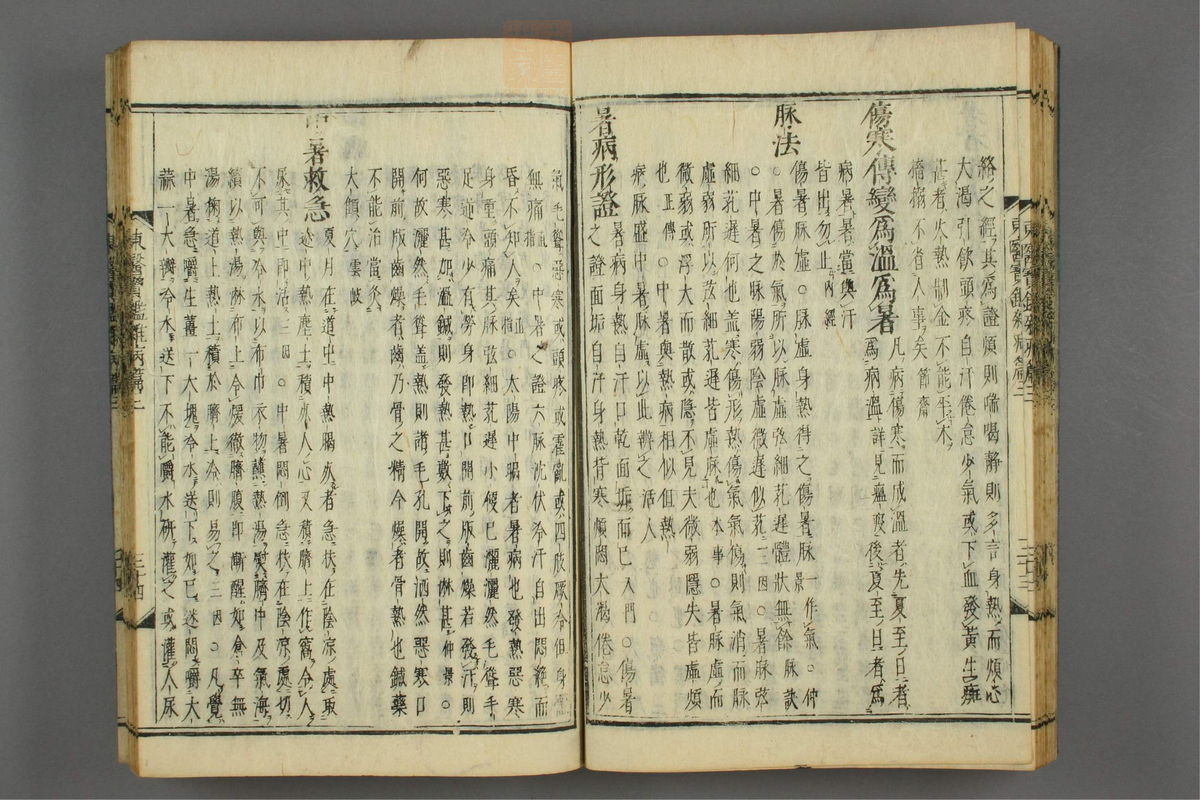 絡之經其爲證煩則喘喝靜則多言身熱而煩心
大渴引飮頭疼自汗倦怠少氣或下血發黃生斑
甚者火熱制金不能平木
搐搦不省人事矣節齋
傷寒傳變爲溫爲暑凡病傷寒而成溫者先夏至日者
爲病溫詳見瘟疫後夏至日者爲
病暑暑當與汗
皆出勿止內經
脉法傷暑脉虛○脉虛身熱得之傷暑脉一作氣○仲景
○暑傷於氣所以脉虛弦細芤遲體狀無餘脉訣
○中暑之脉陽弱陰虛微遲似芤三因○暑脉弦
細芤遲何也盖寒傷形熱傷氣氣傷則氣消而脉
虛弱所以弦細芤遲皆虛脉也本事○暑脉虛而
微弱或浮大而散或隱不見夫微弱隱失皆虛煩
也正傳○中暑與熱病相似但熱
病脉盛中暑脉虛以此辨之活人
暑病形證暑病身熱自汗口乾面垢而已入門○傷暑
之證面垢自汗身熱背寒煩悶大渴倦怠少
氣毛聳惡寒或頭疼或霍亂或四肢厥冷但身體
無痛直指○中暑之證六脉沈伏冷汗自出悶絶而
昏不知人矣直指○太陽中暍者暑病也發熱惡寒
身重頭痛其脉弦細芤遲小便已灑灑然毛聳手
足逆冷少有勞身卽熱口開前版齒燥若發汗則
惡寒甚加溫鍼則發熱甚數下之則淋甚仲景○
何故灑然毛聳盖熱則諸毛孔開故洒然惡寒口
開前版齒燥者齒乃骨之精今燥者骨熱也鍼藥
不能治當灸
大顀穴雲岐
中暑救急夏月在道中熱腸欲者急扶在陰凉處取
途中熱塵土積水人心又積臍上作窩令人
尿其中卽活三因○中暑悶倒急扶在陰凉處切
不可與冷水以布巾衣物蘸熱湯熨臍中及氣海
續以熱湯淋布上令煖徹臍腹卽漸醒如倉卒無
湯掬道上熱土積於臍上冷則易之三因○凡覺
中暑急嚼生薑一大塊冷水送下如已迷悶嚼大
蒜一大瓣冷水送下不能嚼水硏灌之或灌人尿
東醫寶鑑雜病篇三
三十三
東醫寶鑑雜病篇三
三十四